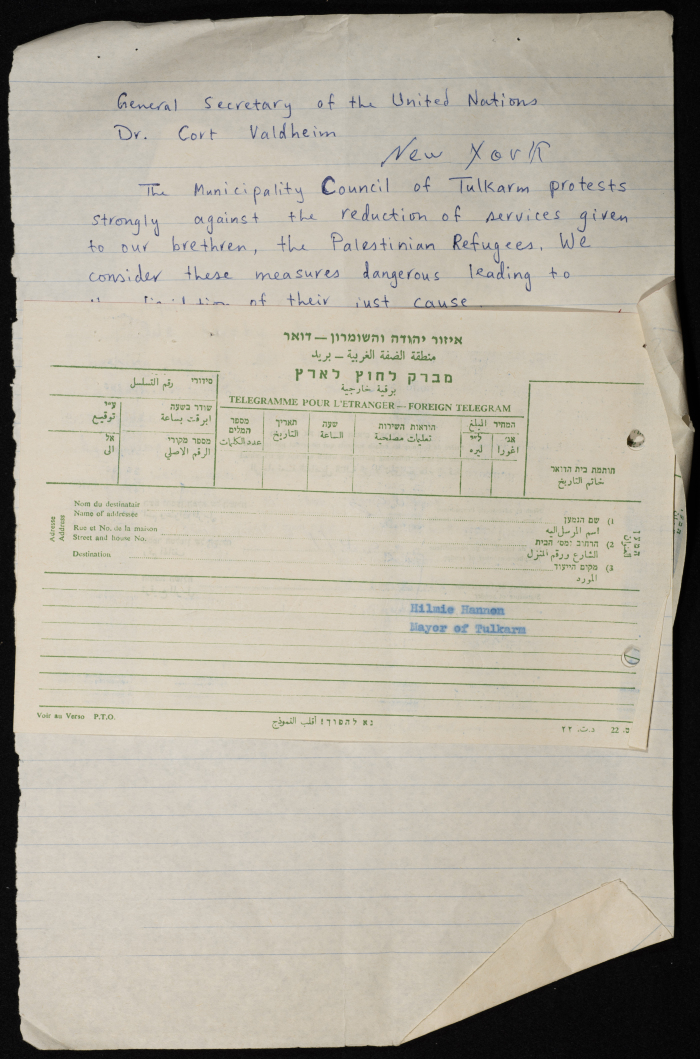 General Secretary of the United Nations
Dr. Cort Valdheim
New York
The Municipality Council of Tulkarm protests
strongly against the reduction of services given
to our brethren, the Palestinian Refugees. We
consider these measures dangerous leading to
of their just cause.
איזור יהודה והשומרון — דואר
منطقة الضفة الغربية — بريد
מברק לחוץ לארץ
برقية خارجية
TELEGRAMME POUR L'ETRANGER — FOREIGN TELEGRAM
סידורי رقم التسلسل
ע״י توقيع
שודר בשעה ابرقت بساعة
אל الى
מספר מקורי الرقم الاصلي
מספר המלים عدد الكلمات
תאריך التاريخ
שעה الساعة
הוראות השירות تعليمات مصلحية
המחיר المبلغ
ל״י ليره
אג׳ اغورا
חותמת בית הדואר
خاتم التاريخ
Adresse
Address
Nom du destinatair
Name of addressee
Rue et No. de la maison
Street and house No.
Destination
1) שם הנמען
اسم المرسل اليه
2) הרחוב ומס׳ הבית
الشارع ورقم المنزل
3) מקום הייעוד
المورد
Hilmie Hannon
Mayor of Tulkarm
Voir au Verso P.T.O.
נא להפוך! أقلب النموذج
د.ت. ٢٢
22